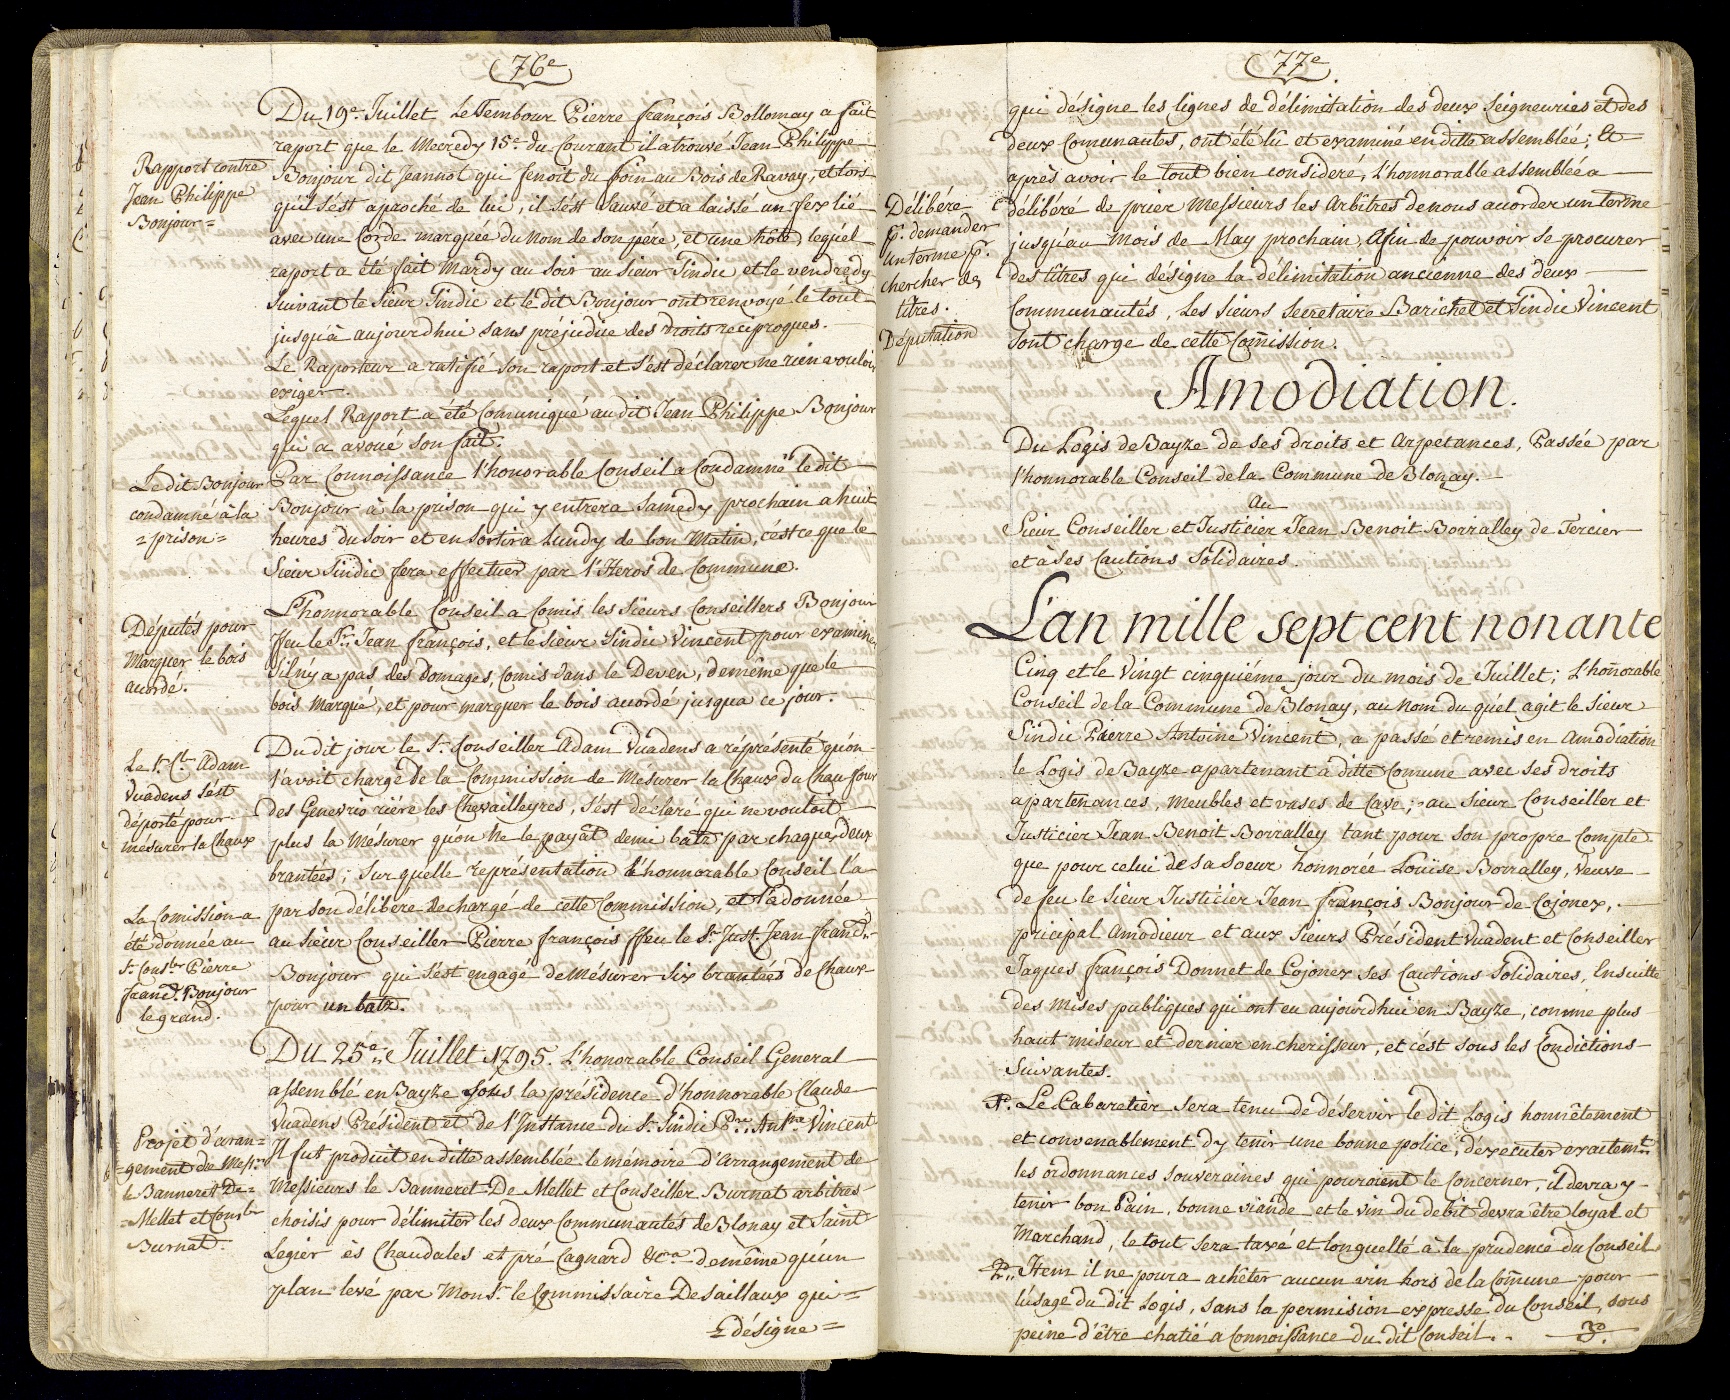 76e
Du 19e. Juillet Le Tembour Pierre françois Bollomay a fait
raport que le Mecredy 15e du Courant il a trouvé Jean Philippe
Rapport contre
Jean Philippe
Bonjour=
Bonjour dit Jeannot qui fenoit du foin au Bois de Ravay, et lors
qu'il s'est aproché de lui, il s'est sauvé et a laissé un fex lié
avec une Corde marquée du Nom de son pére, et une hôte, lequel
raport a été fait Mardy au soir au sieur Sindic et le vendredy
suivant le sieur Sindic et le dit Bonjour ont renvoyé le tout
jusqu'à aujourdhui sans préjudice des droits reciproques.
Le Raporteur a ratifié son raport et s'est déclarer ne rien vouloir
exiger.
Lequel Raport a été Comuniqué au dit Jean Philippe Bonjour
qui a avoué son fait.
Le dit Bonjour
condamné à la
=prison=
Par Connoissance l'honorable Conseil a Condamné le dit
Bonjour à la prison qui y entrera Samedy prochain a huit
heures du soir et en sortira Lundy de bon Matin, c'ést ce que le
Sieur Sindic fera effectuer par l'Heros de Commune.
Députés pour
Marquer le bois
acordé.
L'honnorable Conseil a Comis les Sieurs Conseillers Bonjour
ffeu le Sr. Jean françois, et le sieur Sindic Vincent pour examiner
s'il n'y a pas des Domages, Comis dans le Deven, de même que le
bois Marqué, et pour marquer le bois acordé jusqua ce jour.
Le Sr. Clr Adam
Vuadens s'ést
déporté pour
mesurer la Chaux
Du dit jour le Sr. Conseiller Adam Vuadens a répréseenté qu'on
l'avoit chargé de la Commission de Mésurer la Chaux du Chau four
des Genevrio riére les Chevailleyres, s'ést declaré qui ne vouloit
plus la Mésurer qu'on Ne le payat demi batz par chaque deux
brantées; Sur quelle représentation l'honnorable Conseil l'a
par son délibere dechargé de cette Commission, et l'a donnée
La Comission a
été donnée au
Sr. Conslr Pierre
francs. Bonjour
le grand.
au Sieur Conseiller Pierre françois ffeu le Sr Just. Jean francs.
Bonjour qui s'est engagé de Mésurer Six brantées de Chaux
pour un batz.
Du 25e. Juillet 1795. L'honorable Conseil General
assemblé en Bayze sous la présidence d'honnorable Claude
Vuadens Président et de l'Instance du Sr Sindic Pre. Antne Vincent
Projet d'aran=
=gement de Messrs
le Banneret De=
=Mellet et Conslr
Burnat.
Il fut produit en ditte assemblée le mémoire d'Arrangement de
Messieurs le Banneret De Mellet et Conseiller Burnat arbitres
choisis pour délimiter lés deux Communautés de Blonay et Saint
Legier ès Chaudales et pré Cagnard &ca de même qu'un
plan levé par Monsr. le Commissaire Desaillaux qui=
= désigne=
77e
qui désigne les lignes de délimitation des deux Seigneuries et des
deux Comunautes, ont été lû et examiné en ditte assemblée; Et
après avoir le tout bien consideré, l'honnorable assemblée a
Délibéré
pr. demander
un terme pr.
chercher des
titres.
Députation
délibéré de prier Messieurs les Arbîtres de nous acorder un terme
jusqu'au mois de May prochain, Afin de pouvoir se procurer
des tîtres qui désigne la délimitation ancienne des deux
Communautés, Les Sieurs Secretaire Barichet et Sindic Vincent
Sont charge de cette Comission.
Amodiation.
Du Logis de Bayze de ses droits et Arpetances, Passée par
l'honnorable Conseil de la Commune de Blonay.
Au
Sieur Conseiller et Justicier Jean Benoit Borralley de Tercier
et à ses Cautions solidaires.
L'an mille sept cent nonante
Cinq et le Vingt cinquiéme jour du mois de Juillet; L'honorable
Conseil de la Commune de Blonay, au Nom du quél agit le Sieur
Sindic Pierre Antoine Vincent, a passé et remis en Amodiation
le Logis de Bayze apartenant à ditte Comune avec ses droits
apartenances, meubles et vases de Cave; au Sieur Conseiller et
Justicier Jean Benoit Borralley tant pour son propre Compte
que pour celui de sa soeur honnorée Louise Borralley, veuve
de feu le Sieur Justicier Jean françois Bonjour de Cojonex,
pricipal Amodieur et aux Sieurs Président Vuadent et Conseiller
Jaques françois Donnet de Cojonex ses Cautions Solidaires, Ensuitte
des mises publiques qui ont eu aujourdhui en Bayze, comme plus
haut miseur et dernier encherisseur, et c'ést sous les Condictions
Suivantes.
1o. Le Cabaretier sera tenu de déservir le dit Logis honnêtement
et convenablement d'y tenir une bonne police, d'éxécuter exactemt
les ordonnances souveraines qui pouroient le Concerner, il devra y
tenir bon Pain, bonne viande et le vin du debit devra être loyal et
Marchand, le tout sera taxé et longuelté à la prudence du Conseil
2o. Item il ne poura achêter aucun vin hors de la Comune pour
l'usage du dit Logis, sans la permision expresse du Conseil, sous
peine d'être chatié a Connoissance du dit Conseil. 3o.